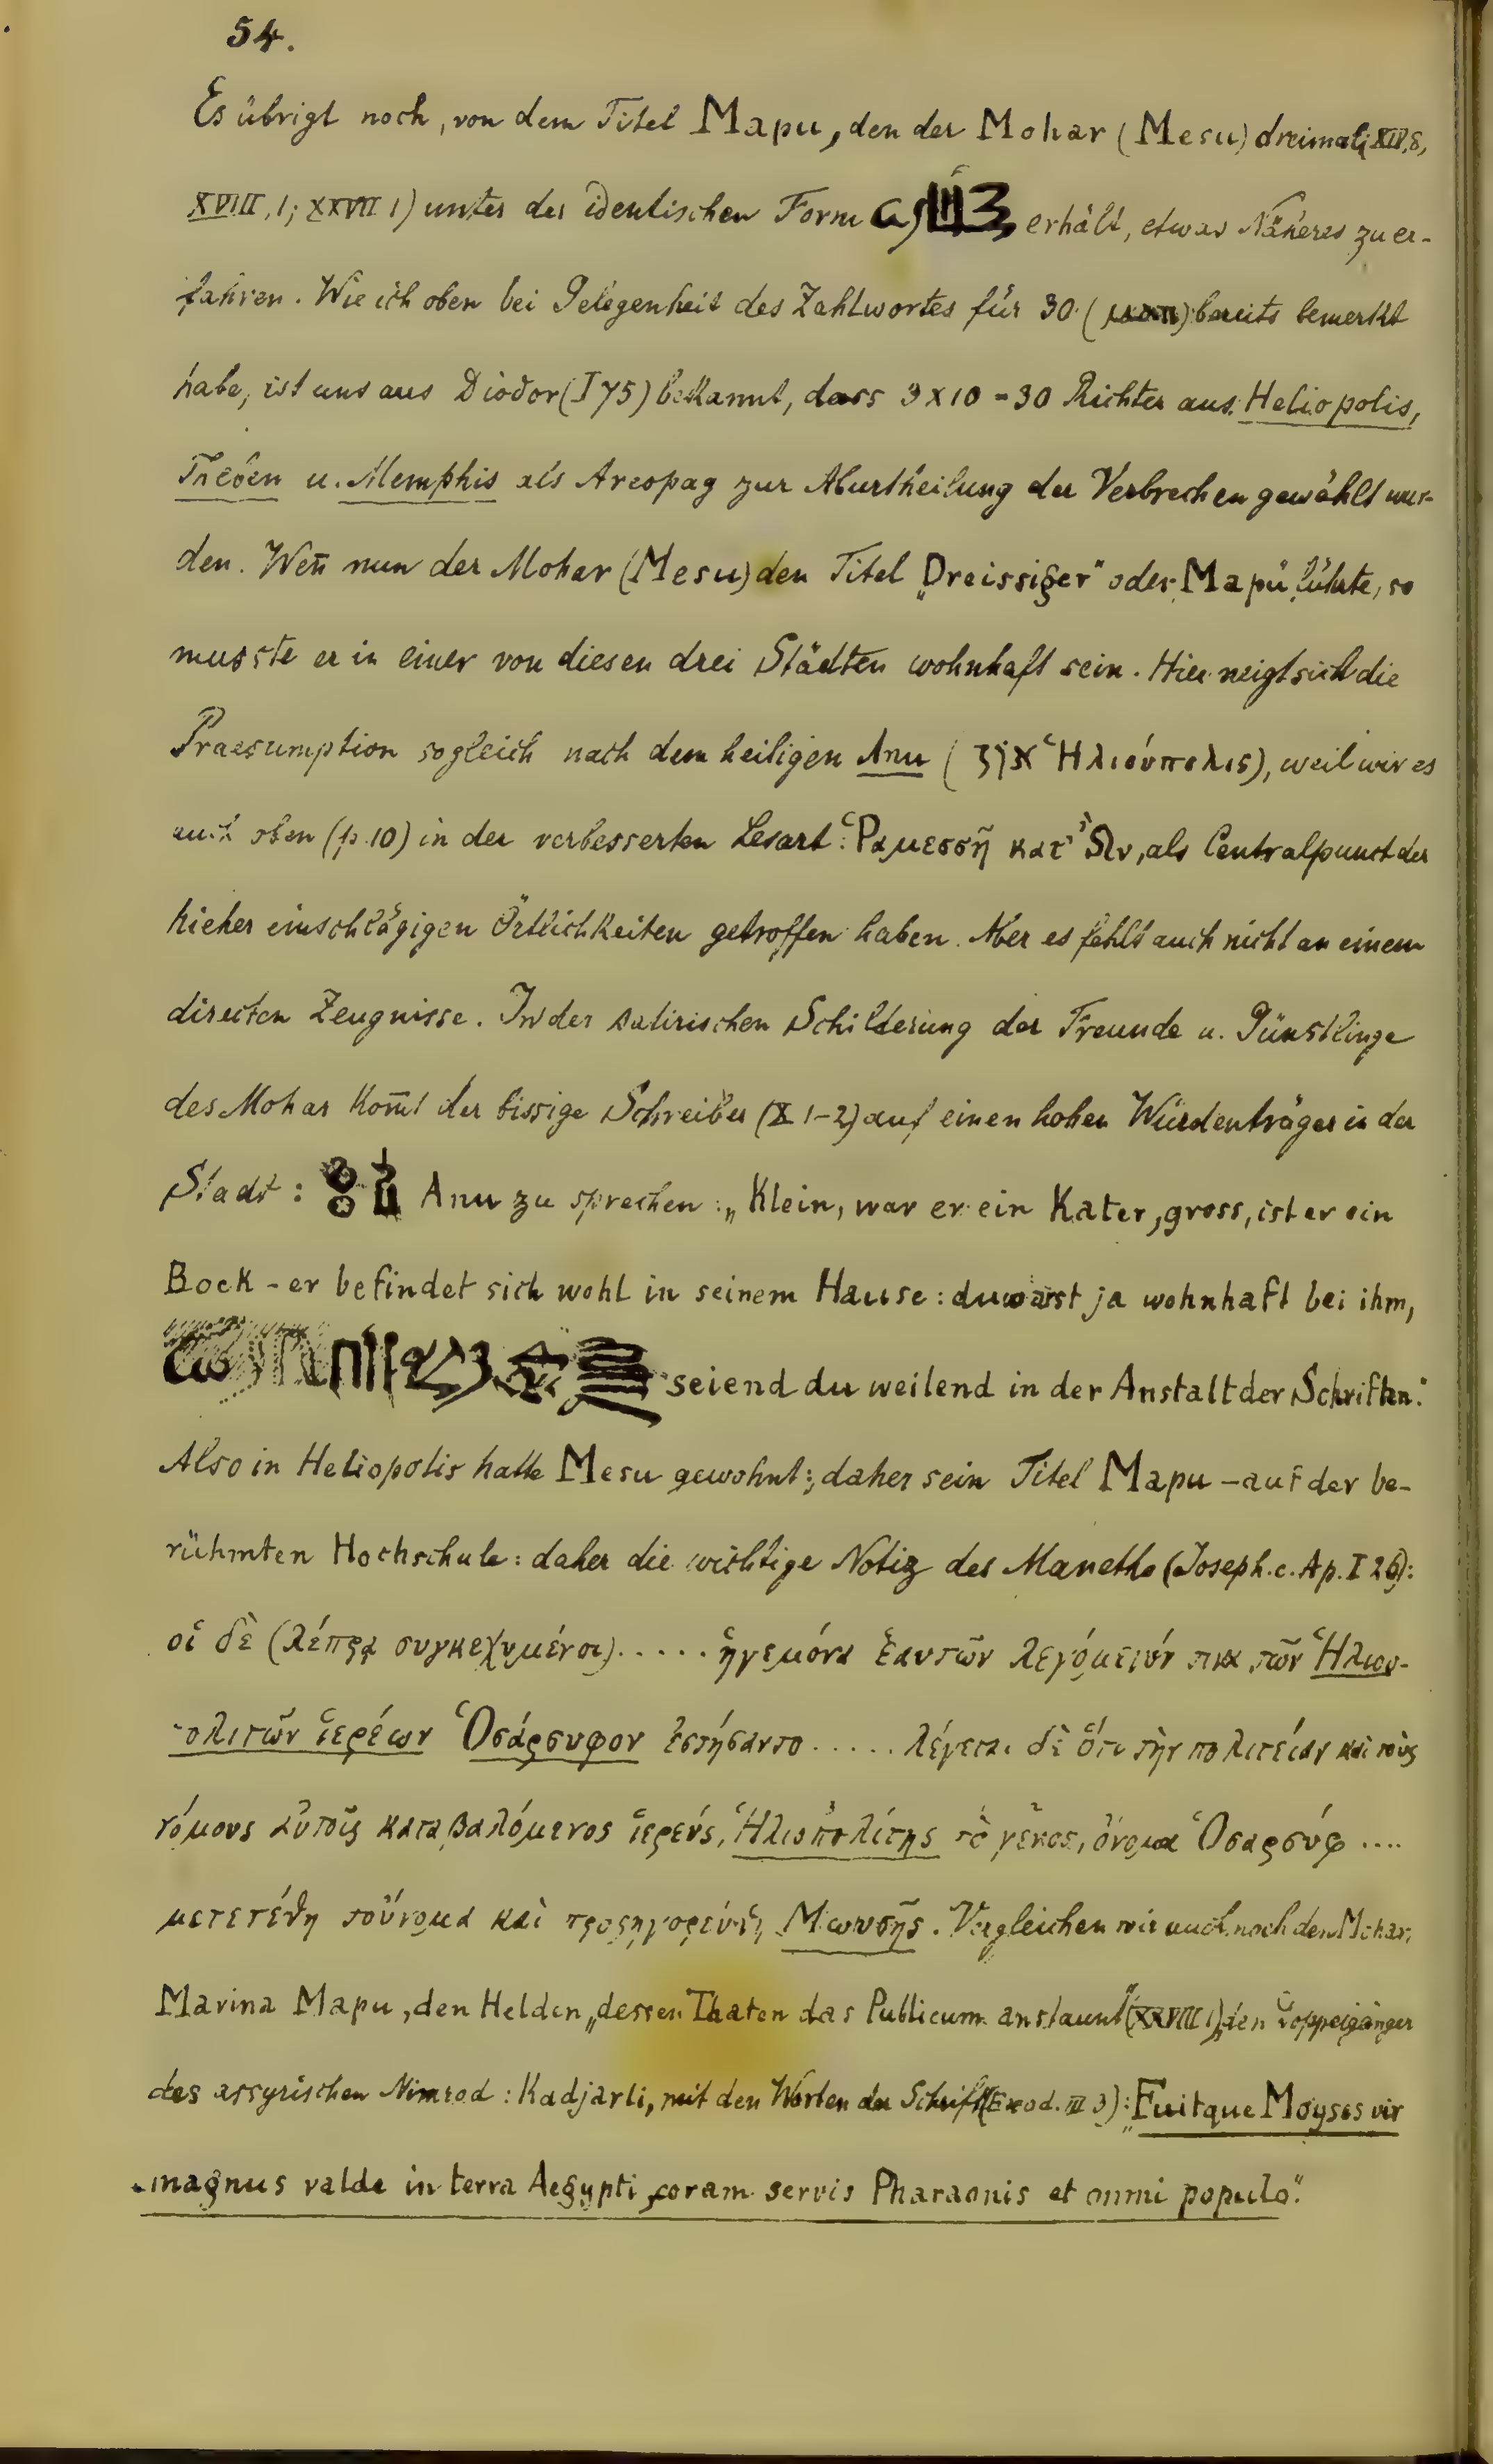 54.
Es übrigt noch, von dem Titel Mapu, den der Mohar (Mesu) dreimal (XIV,8,
XVIII, 1; XXVII 1) unter der identischen Form erhält, etwas Näheres zu er-
fahren. Wie ich oben bei Gelegenheit des Zahlwortes für 30 ( ) bereits bemerkt
habe, ist uns aus Diodor (I 75) bekannt, dass 3 x 10 = 30 Richter aus Heliopolis,
Theben u. Memphis als Areopag zur Aburtheilung der Verbrechen gewählt wur-
den. Wen̄ nun der Mohar (Mesu) den Titel „Dreissiger" oder Mapu führte, so
musste er in einer von diesen drei Städten wohnhaft sein. Hier neigt sich die
Praesumption sogleich nach dem heiligen Anu (אין Ἡλιούπολις), weil wir es
auch oben (p. 10) in der verbesserten Lesart: Ῥαμεσσῆ κατ' Ὦν, als Centralpunct der
hieher einschlägigen Örtlichkeiten getroffen haben. Aber es fehlt auch nicht an einem
directen Zeugnisse. In der satirischen Schilderung der Freunde u. Günstlinge
des Mohar kom̄t der bissige Schreiber (X 1-2) auf einen hohen Würdenträger in der
Stadt: Anu zu sprechen: „Klein, war er ein Kater, gross, ist er ein
Bock - er befindet sich wohl in seinem Hause: du warst ja wohnhaft bei ihm,
seiend du weilend in der Anstalt der Schriften."
Also in Heliopolis hatte Mesu gewohnt; daher sein Titel Mapu – auf der be-
rühmten Hochschule: daher die wichtige Notiz des Manetho (Joseph. c. Ap. I 26):
οἱ δὲ (λέπρᾳ συγκεχυμένοι)..... ἡγεμόνα ἑαυτῶν λεγόμενόν τινα τῶν Ἡλιου-
πολιτῶν ἱερέων Ὀσάρσυφον ἐστήσαντο..... λέγεται δὲ ὅτι τὴν πολιτείαν καὶ τοὺς
νόμους αὐτοῖς καταβαλόμενος ἱερεύς, Ἡλιοπολίτης τὸ γένος, ὄνομα Ὀσαρσύφ ....
μετετέθη τοὔνομα καὶ προσηγορεύθη Μωυσῆς. Vergleichen wir auch noch den Mohar,
Marina Mapu, den Helden „dessen Thaten das Publicum anstaunt" (XXVIII 1), den Doppelgänger
des assyrischen Nimrod: Kadjarti, mit den Worten der Schrift (Exod. III 3): „Fuitque Moyses vir
magnus valde in terra Aegypti coram servis Pharaonis et omni populo."